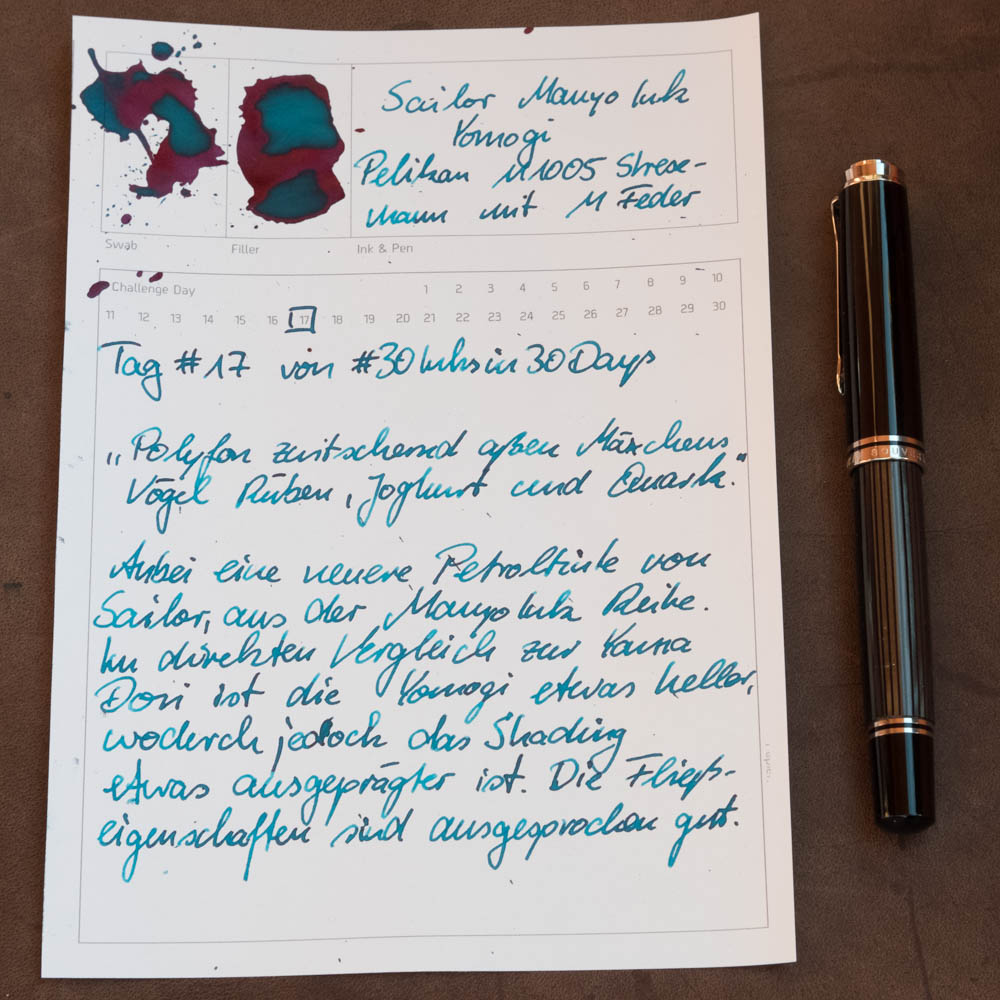 Sailor Manyo Ink
Yomogi
Pelikan M1005 Strese-
mann mit M Feder
Swab
Filler
Ink & Pen
Challenge Day
1 2 3 4 5 6 7 8 9 10
11 12 13 14 15 16 17 18 19 20 21 22 23 24 25 26 27 28 29 30
Tag #17 von #30Inksin30Days
„Polyfon zwitschernd aßen Mäxchens
Vögel Rüben, Joghurt und Quark."
Anbei eine neuere Petroltinte von
Sailor, aus der Manyo Ink Reihe.
Im direkten Vergleich zur Yama
Dori ist die Yomogi etwas heller,
wodurch jedoch das Shading
etwas ausgeprägter ist. Die Fließ-
eigenschaften sind ausgesprochen gut.